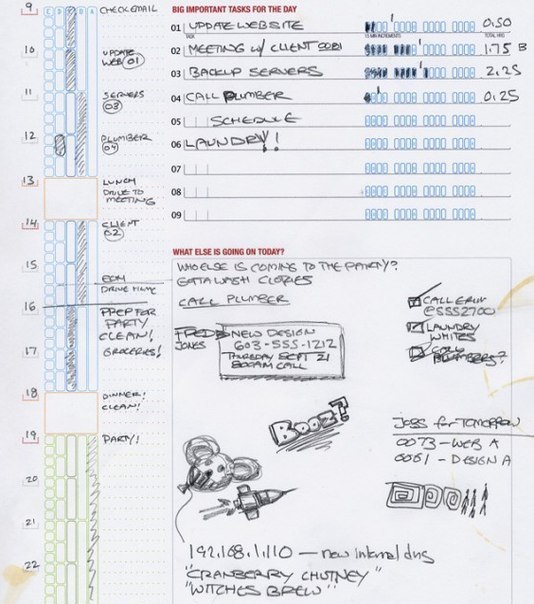 9 CHECK EMAIL
10 UPDATE
WEB 01
11 SERVERS
03
12 PLUMBER
04
13 LUNCH
DRIVE TO
MEETING
14 CLIENT
02
15
EOM
DRIVE HOME
16 PREP FOR
PARTY
CLEAN!
17 GROCERIES!
18 DINNER!
CLEAN!
19 PARTY!
20
21
22
E D A
BIG IMPORTANT TASKS FOR THE DAY
01 UPDATE WEBSITE 0.50
TASK 15 MIN INCREMENTS TOTAL HRS
02 MEETING W/ CLIENT 0021 1.75 B
03 BACKUP SERVERS 2.25
04 CALL PLUMBER 0.25
05 SCHEDULE
06 LAUNDRY!
07
08
09
WHAT ELSE IS GOING ON TODAY?
WHO ELSE IS COMING TO THE PARTY?
GOTTA WASH CLOTHES
CALL PLUMBER
FRED
JONES
NEW DESIGN
603-555-1212
THURSDAY SEPT 21
800AM CALL
CALL ERIN
@5552700
LAUNDRY
WHITES
CALL
PLUMBERS?
BOOZ?
JOBS for TOMORROW
0073 - WEB A
0061 - DESIGN A
192.168.1.110 — new internal dns
"CRANBERRY CHUTNEY"
"WITCHES BREW"